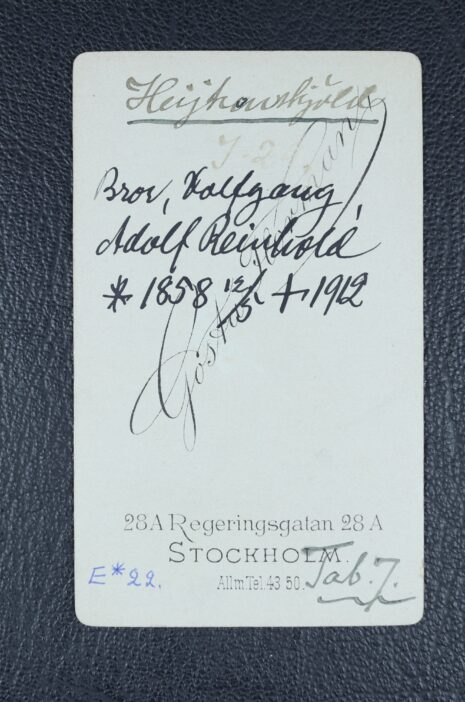 Heijkenskjöld
Bror, Wolfgang,
Adolf Reinhold
* 1858 12/5 + 1912
Gösta
28A Regeringsgatan 28A
STOCKHOLM.
Allm.Tel. 43 50.
Tab. 7.
E* 22.